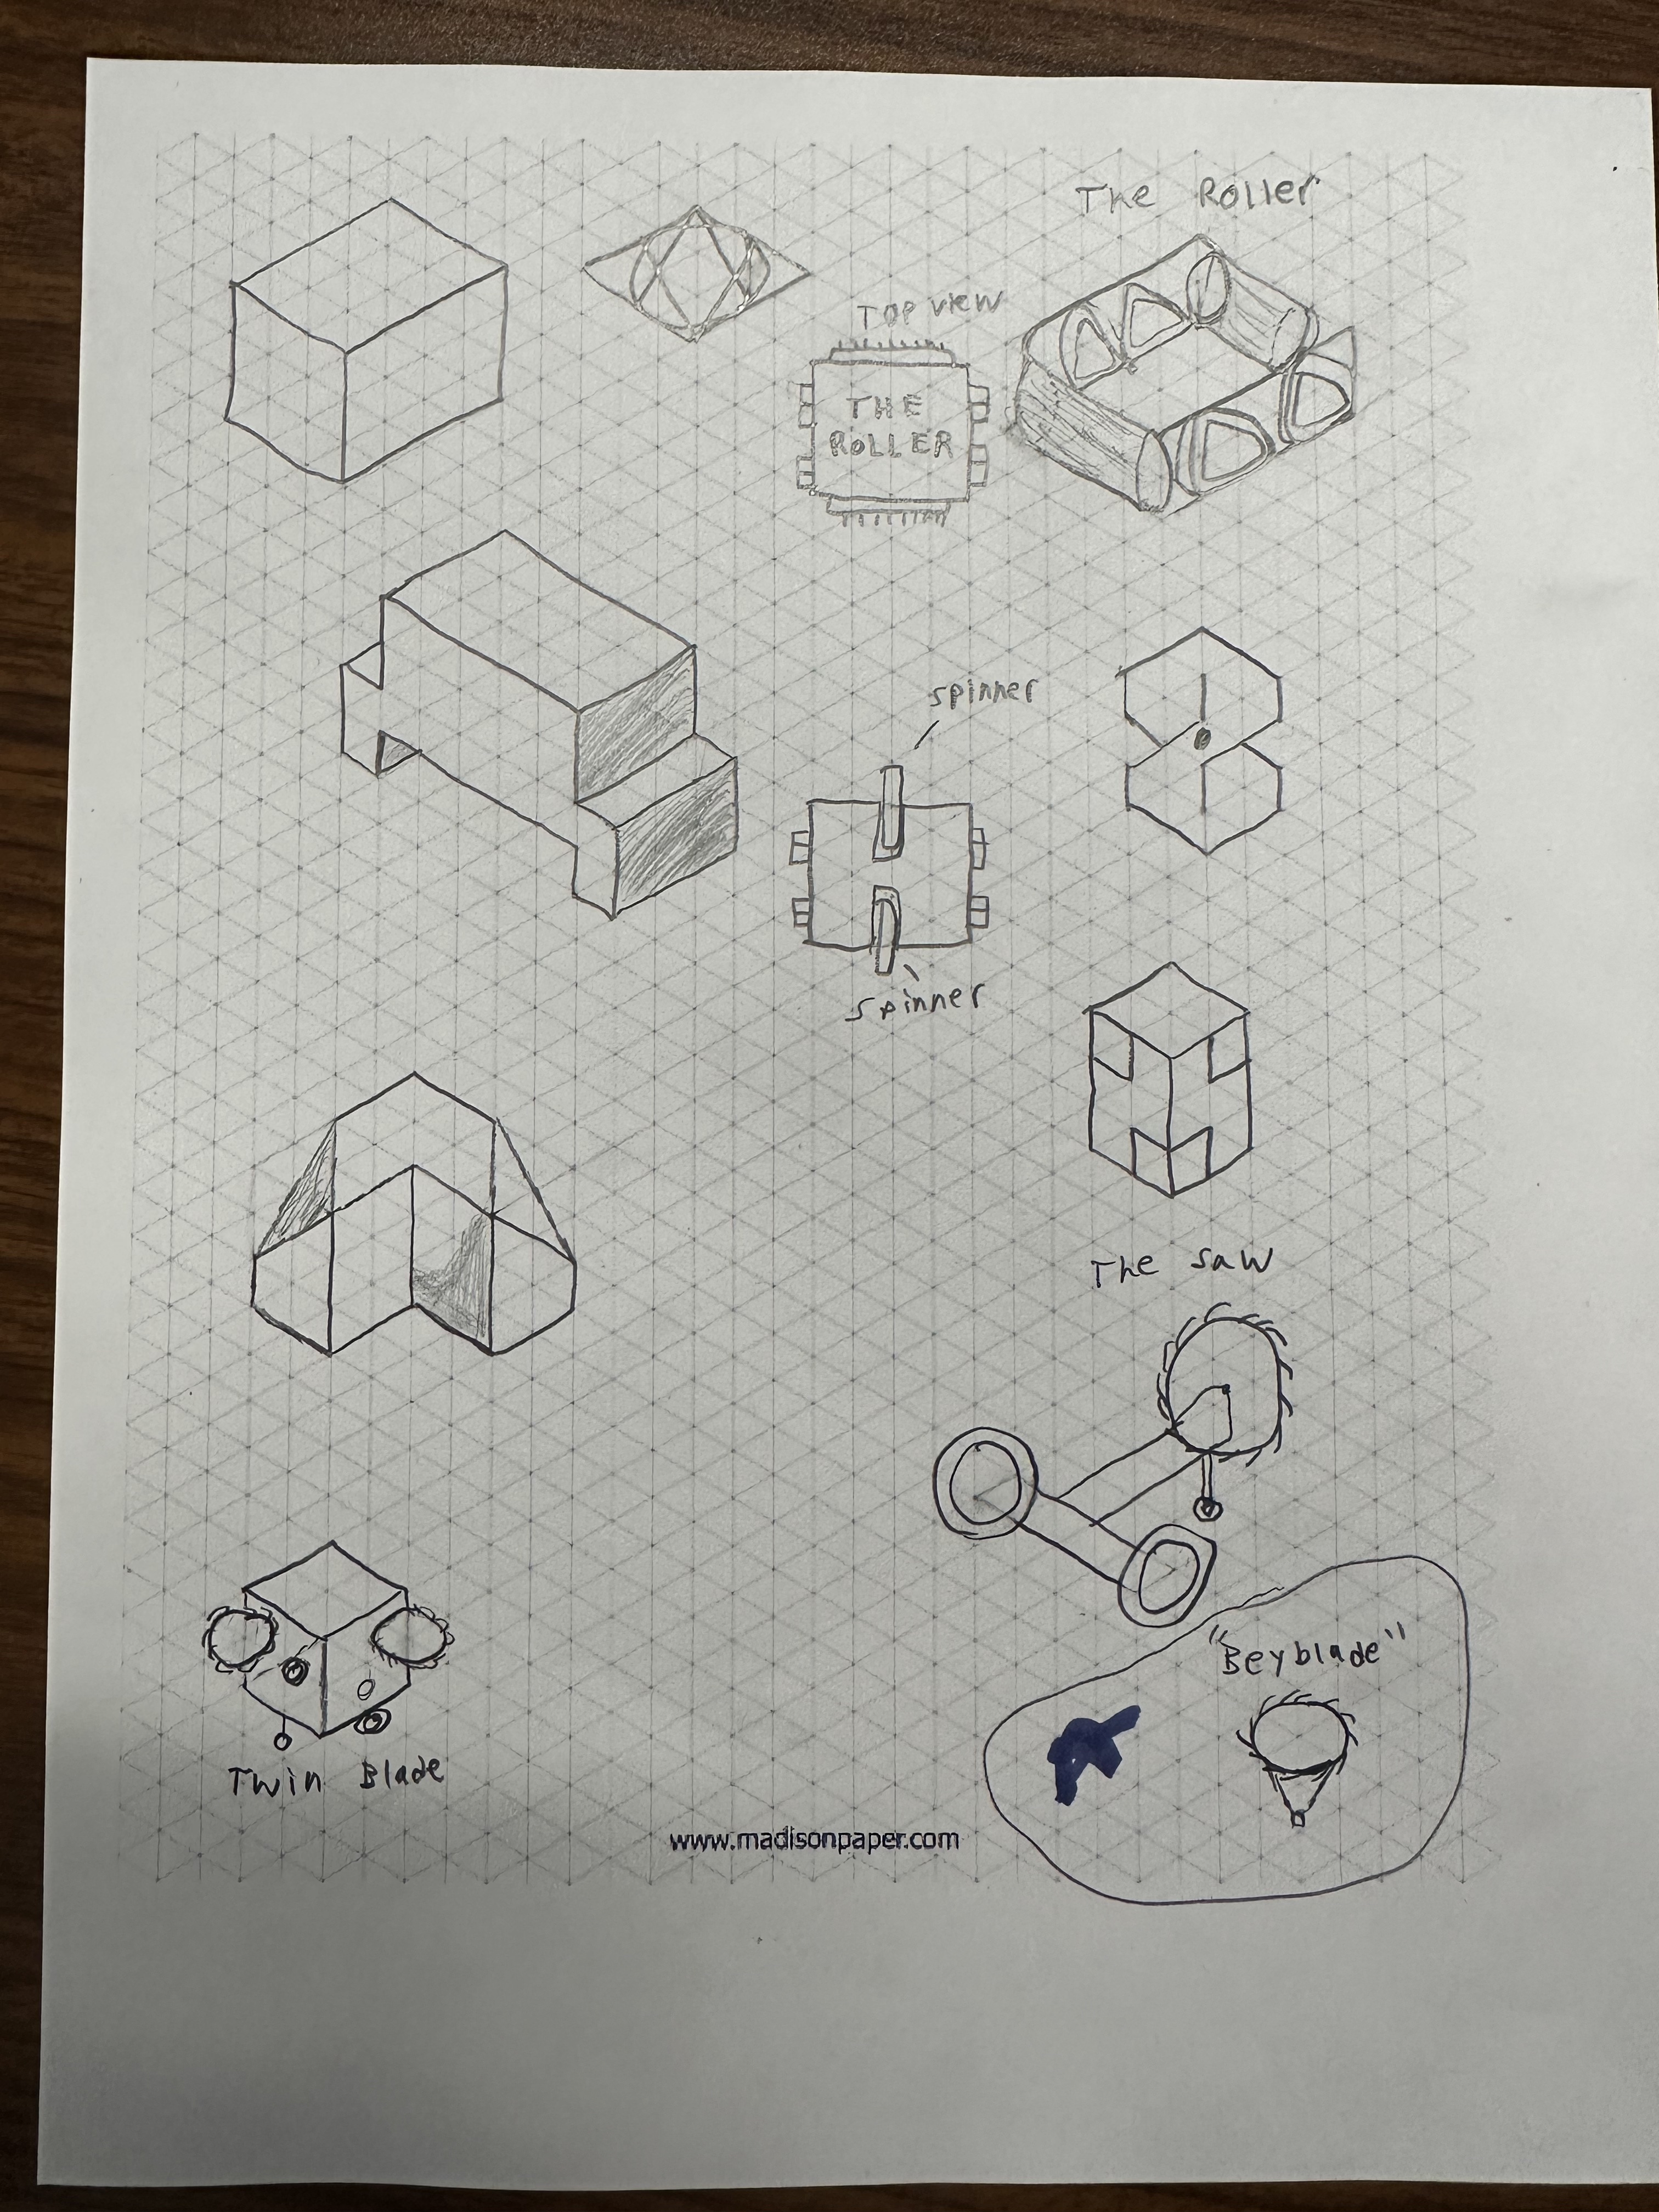 The Roller
TOP view
THE
ROLLER
spinner
spinner
The saw
"Beyblade"
Twin Blade
www.madisonpaper.com